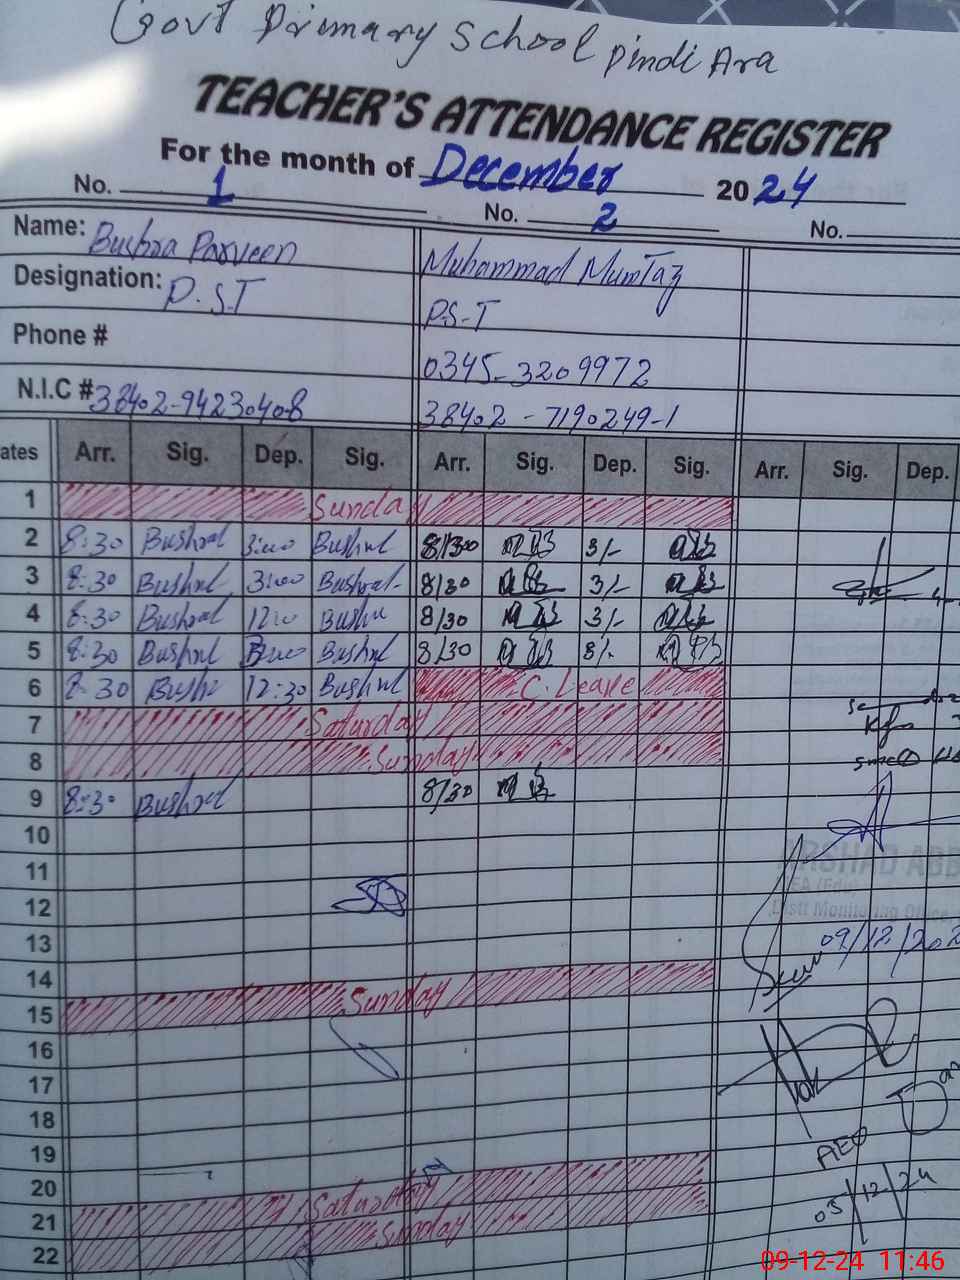 Govt Primary School Pindi Ara
TEACHER'S ATTENDANCE REGISTER
For the month of December 2024
No. 1 No. 2 No.
Name: Bushra Parveen Muhammad Mumtaz
Designation: P.S.T P.S-T
Phone # 0345-3209972
N.I.C # 38402-9423040-8 38402-7190249-1
ates Arr. Sig. Dep. Sig. Arr. Sig. Dep. Sig. Arr. Sig. Dep.
1 Sunday
2 8:30 Bushral 3:00 Bushral 8/30 3/-
3 8:30 Bushral 3:00 Bushral 8/30 3/-
4 8:30 Bushral 12:0 Bushra 8/30 3/-
5 8:30 Bushral Bushral 8/30
6 8:30 Bushr 12:30 Bushral C. Leave
7 Saturday
8 Sunday
9 8:30 Bushral 8/30
10
11
12
13
09/12/202
14
15 Sunday
16
17
18
19
AEO
20 Saturday
05/12/24
21 Sunday
22
09-12-24 11:46